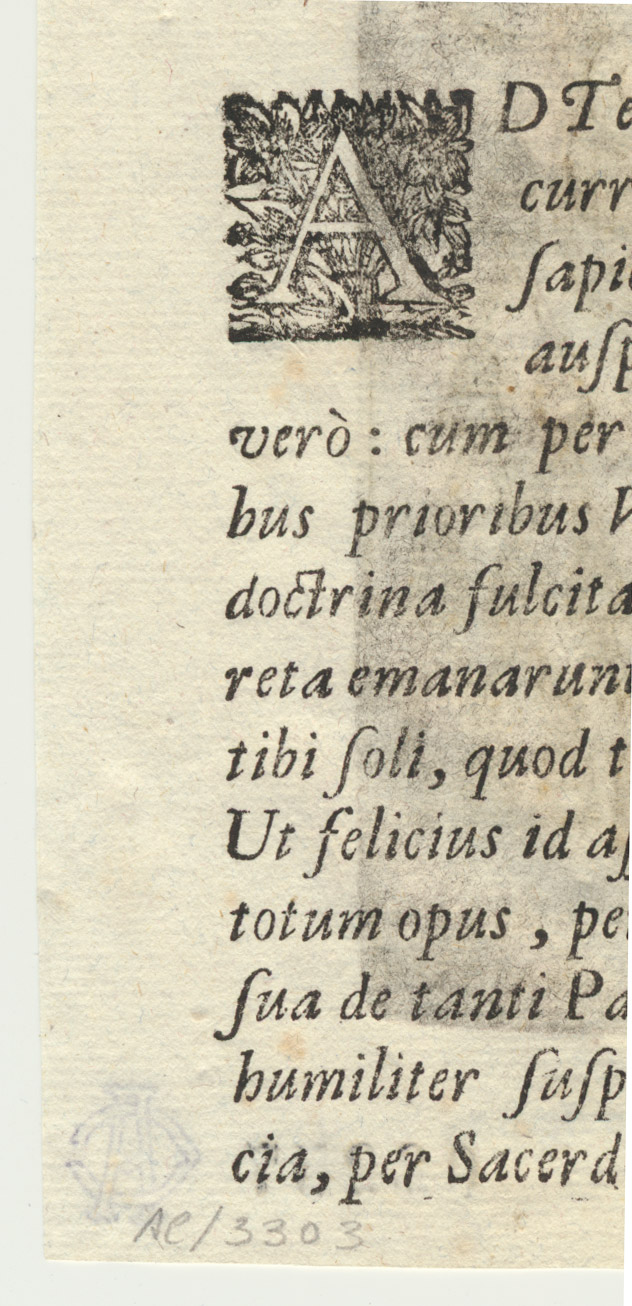 AD Te
curr
ſapi
auſp
verò : cum per
bus prioribus V
doctrina fulcita
reta emanarunt
tibi ſoli, quod t
Ut felicius id aſ
totum opus , pe
ſua de tanti Pa
humiliter ſuſp
cia, per Sacerd
Al/3303